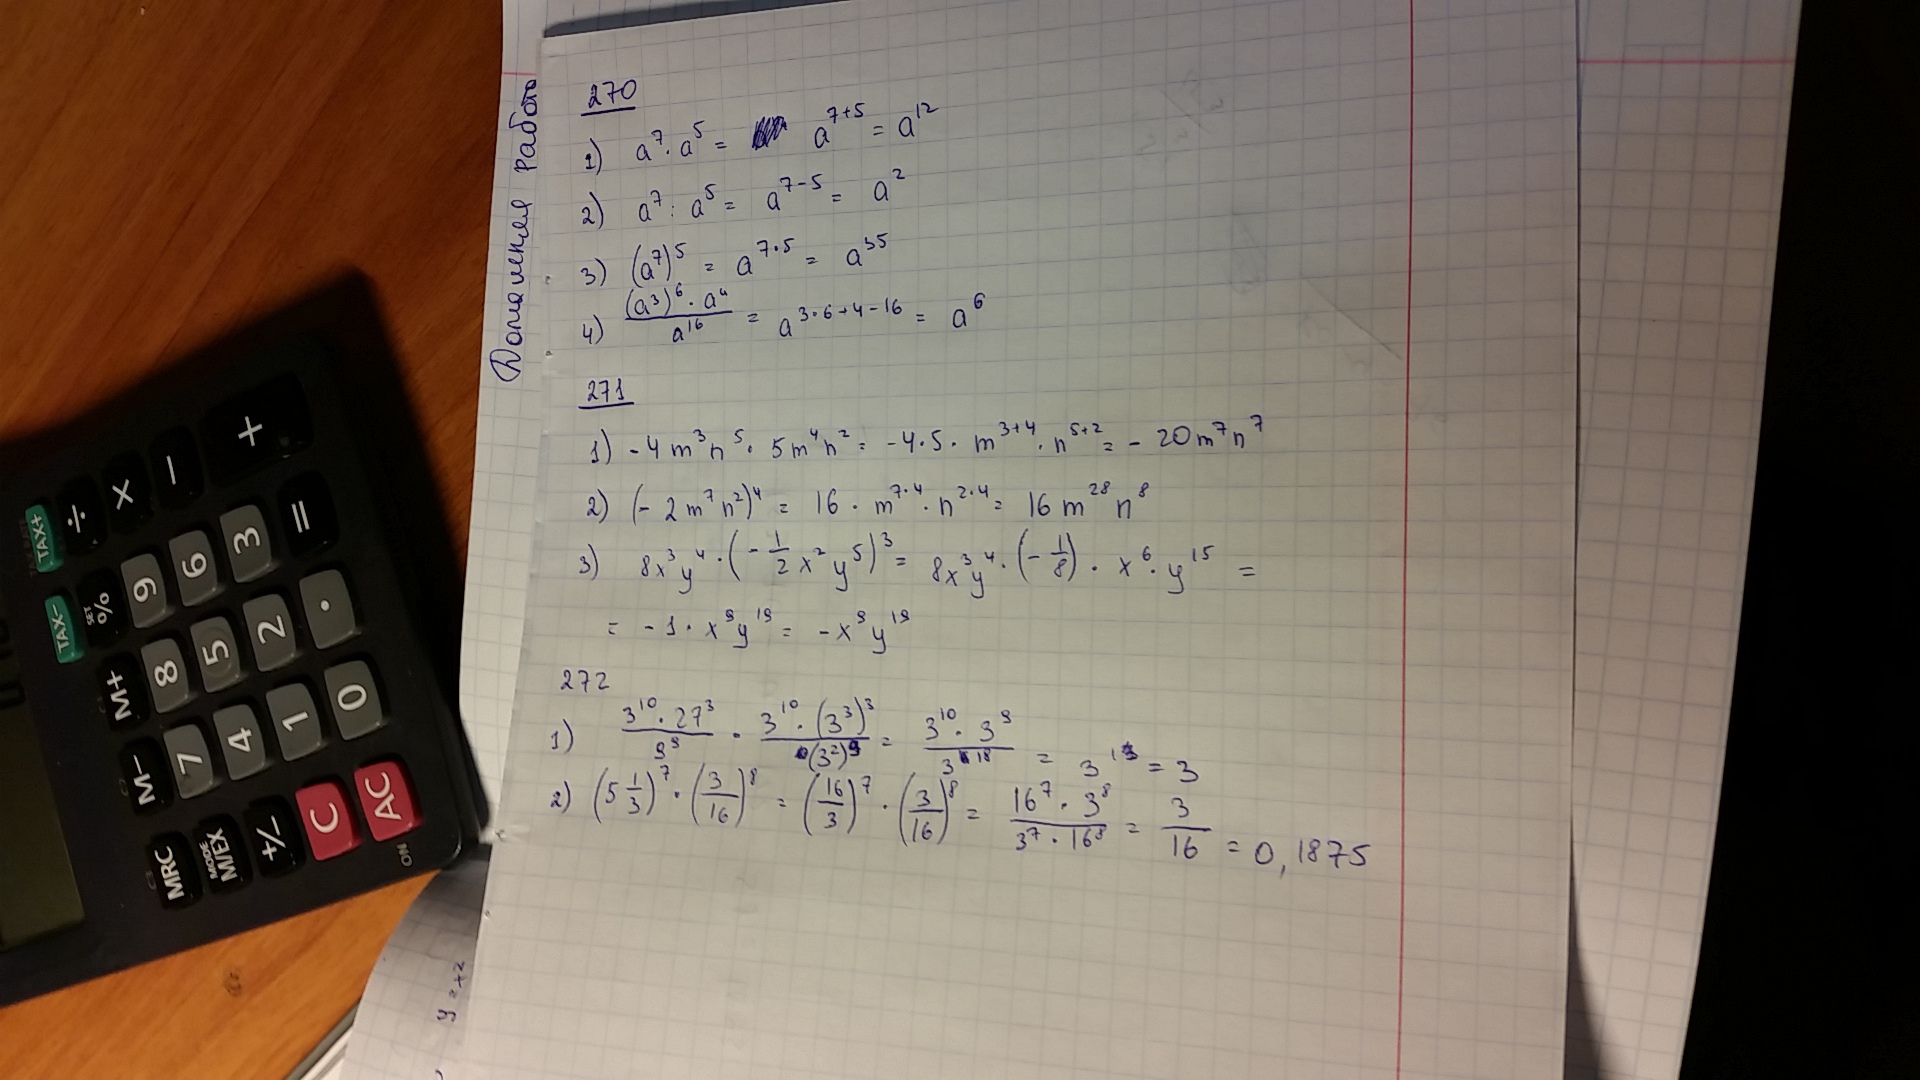 Домашняя работа
270
1) a⁷·a⁵ = a⁷⁺⁵ = a¹²
2) a⁷ : a⁵ = a⁷⁻⁵ = a²
3) (a⁷)⁵ = a^{7·5} = a³⁵
4) \frac{(a³)⁶·a⁴}{a¹⁶} = a^{3·6+4-16} = a⁶
271
1) -4m³n⁵·5m⁴n² = -4·5·m³⁺⁴·n⁵⁺² = -20m⁷n⁷
2) (-2m⁷n²)⁴ = 16·m^{7·4}·n^{2·4} = 16m²⁸n⁸
3) 8x³y⁴·(-\frac{1}{2}x²y⁵)³ = 8x³y⁴·(-\frac{1}{8})·x⁶·y¹⁵ =
= -1·x⁹y¹⁹ = -x⁹y¹⁹
272
1) \frac{3¹⁰·27³}{9⁹} = \frac{3¹⁰·(3³)³}{(3²)⁹} = \frac{3¹⁰·3⁹}{3¹⁸} = 3¹ = 3
2) (5\frac{1}{3})⁷·(\frac{3}{16})⁸ = (\frac{16}{3})⁷·(\frac{3}{16})⁸ = \frac{16⁷·3⁸}{3⁷·16⁸} = \frac{3}{16} = 0,1875
TAX+ ÷ × - +
TAX- SET % 9 6 3 =
M+ 8 5 2 .
M- 7 4 1 0
MRC MODE M/EX +/- C AC
ON
y = x2